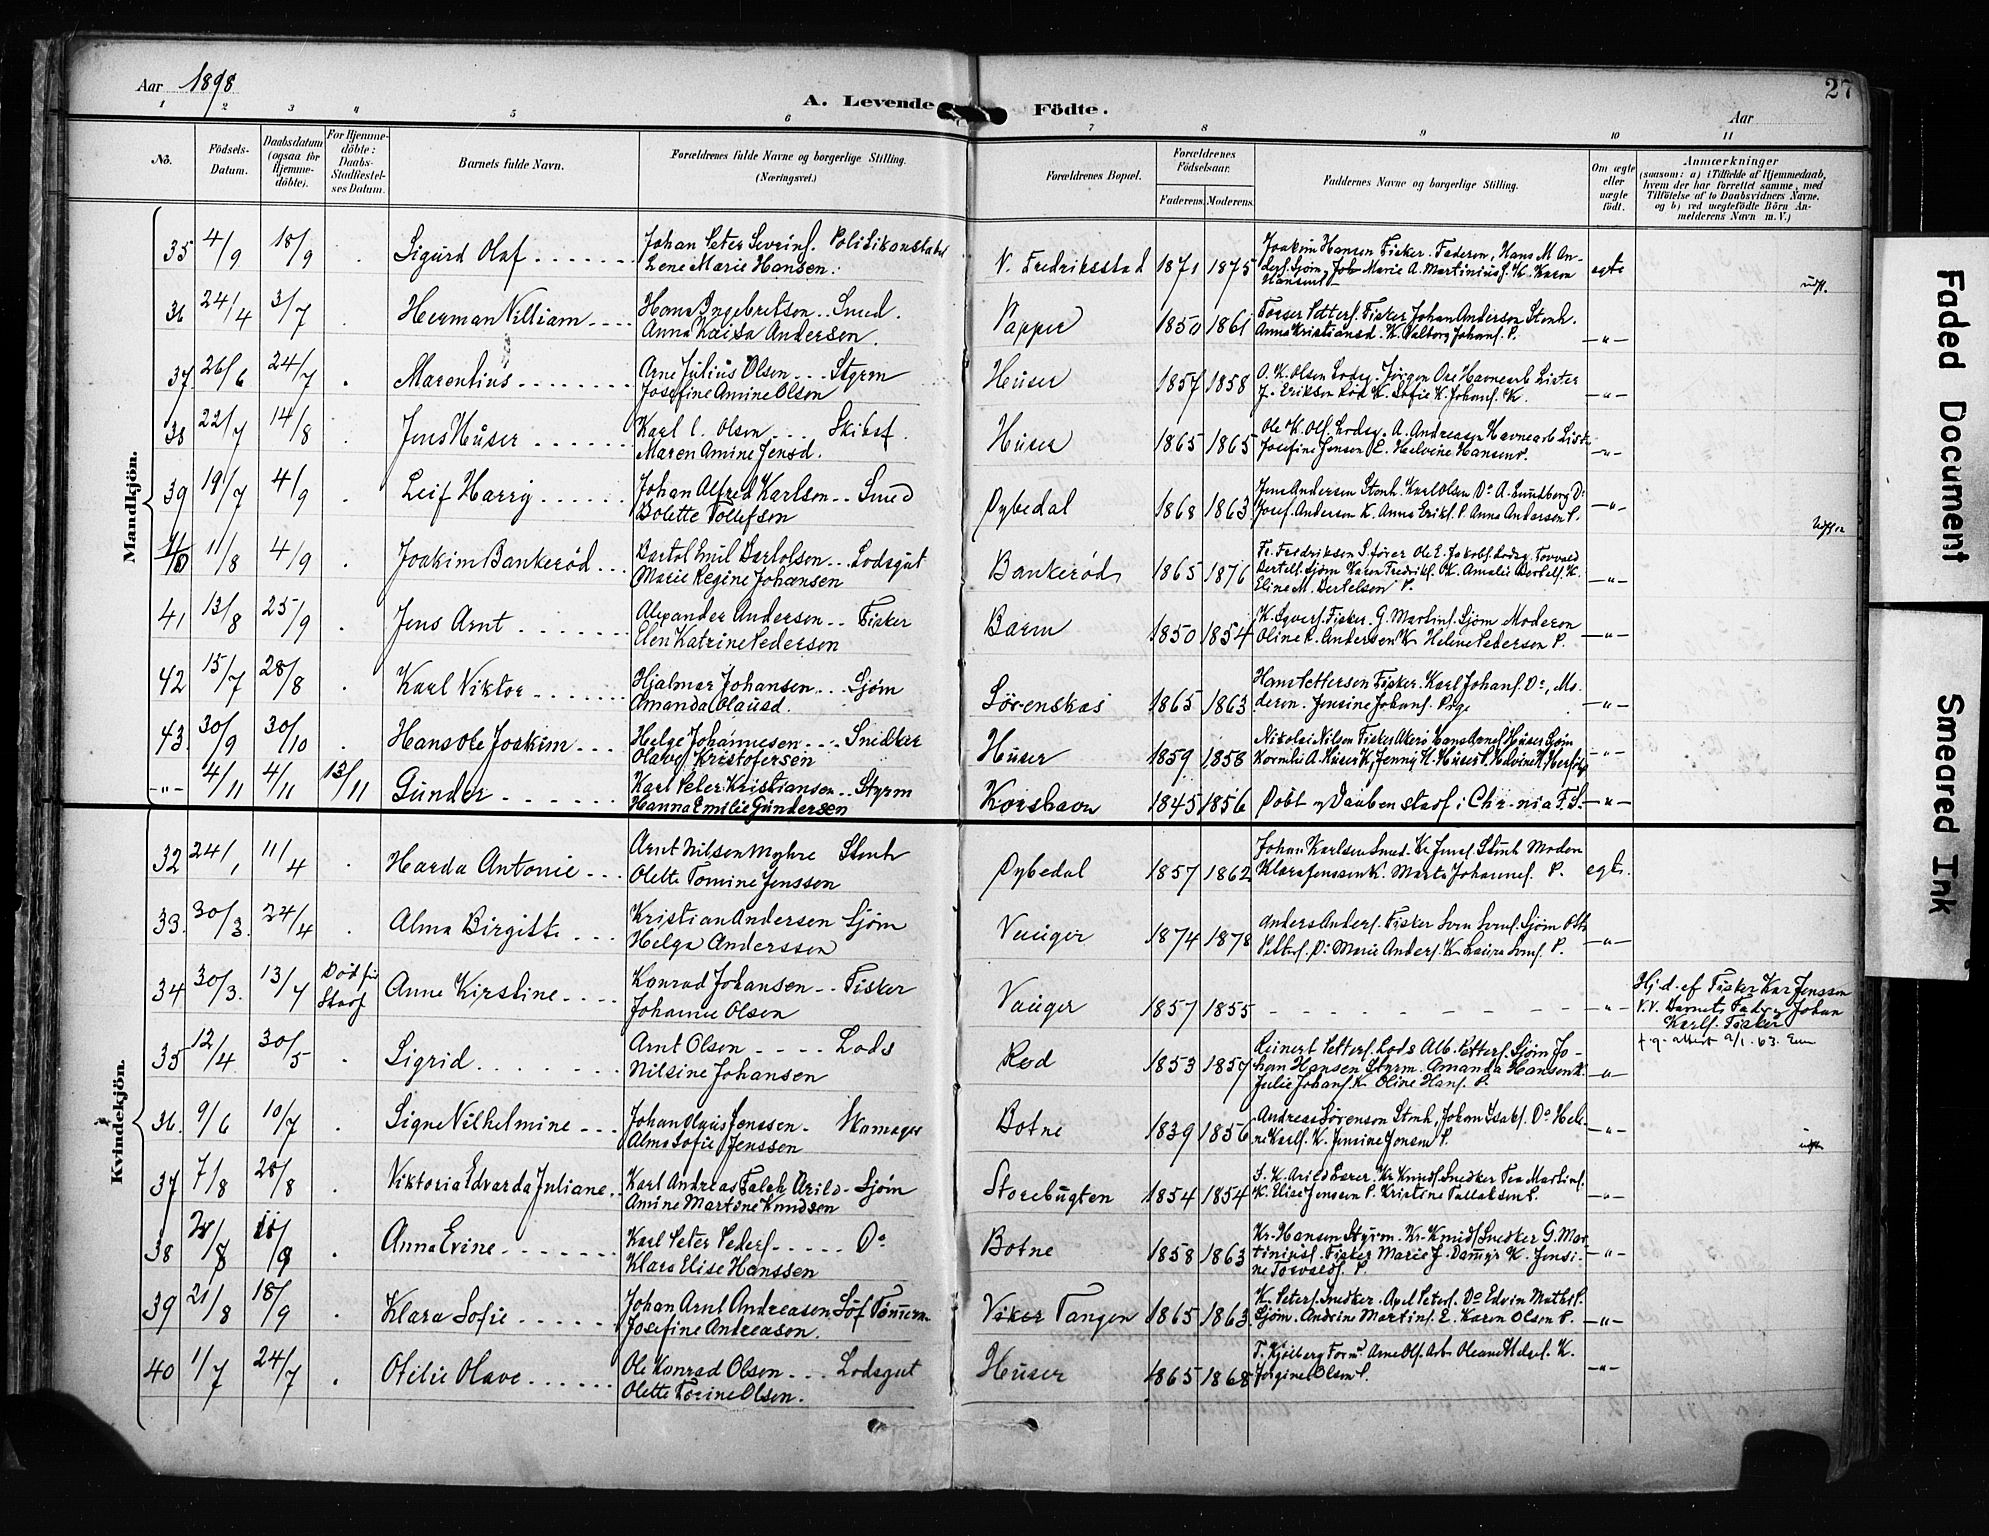 Aar 1898
A. Levende Födte.
27
Aar
1 2 3 4 5 6 7 8 9 10 11
No. Födsels-Datum. Daabsdatum (ogsaa för Hjemme-döbte). For Hjemme-döbte: Daabs-Stadfestel-ses Datum. Barnets fulde Navn. Forældrenes fulde Navne og borgerlige Stilling. (Næringsvei.) Forældrenes Bopæl. Forældrenes Födselsaar. Faderens Moderens Faddernes Navne og borgerlige Stilling. Om ægte eller uægte födt. Anmærkninger (saasom: a) i Tilfælde af Hjemmedaab, hvem der har forrettet samme, med Tilföielse af to Daabsvidners Navne, og b) ved uægtefödte Börn An-melderens Navn m. V.)
Mandkjön.
35 4/9 18/9 Sigurd Olaf Johan Peter Severins. Politikonstabel
Lene Marie Hansen. V. Fredriksstad 1871 1875 Joakim Hansen Fisker. Faderen, Hans M An-
Marie A. Martinius. K. Karen
Hansen egte
36 24/4 3/7 Herman Villiam Hans Ingebretsen Smed.
Anna Kaisa Andersen. Papper 1850 1861 Petters. Fisker Johan Anderson Stenh.
Anna Kristiansd. K. Valborg Johans. P. -"-
37 26/6 24/7 Marentius Arne Julius Olsen Styrm
Josefine Amine Olsen Huser 1857 1858 O. K. Olsen Lods. Jørgen Ose Havnearb Lister
J. Eriksen Lods K. Sofie K. Johans. K. -"-
38 22/7 14/8 Jens Huser Karl C. Olsen Skibsf.
Maren Amine Jensd. Huser 1865 1865 Ole K. Ols. Lods. A. Andreas. Havnearb
Josefine Jensen K. Helvine Hansen P. -"-
39 19/7 4/9 Leif Harry Johan Alfred Karlson Smed
Bolette Tollefsen Dybedal 1868 1863 Jens Andersen Stenh. Karl Olsen Do A. Lundberg Do
Josef. Andersen K. Anna Eriks. P. Anna Andersen P. -"-
40 11/8 4/9 Joakim Bankerød Bartol Emil Bertolsen Lodsgut
Marie Regine Johansen Bankerød 1865 1876 Fr. Fredriksen S. fører Ole E. Jakobs. Lods. Torvald
Bertels. Sjøm Karen Fredriks. K. Amalie Bertels. K.
Eline M. Bertelsen P. -"-
41 13/8 25/9 Jens Arnt Alexander Andersen Fisker
Elen Katrine Pedersen Barm 1850 1854 K. Syvers. Fisker. G. Martins. Sjøm Moderen
Oline P. Andersen K Helene Pedersen P. -"-
42 15/7 28/8 Karl Viktor Hjalmar Johansen Sjøm
Amanda Olausd. Sørenskas 1865 1863 Hans Pettersen Fisker. Karl Johans. Do, Mo-
deren. Jensine Johans. Pige -"-
43 30/9 30/10 Hans Ole Joakim Helge Johannesen Snedker
Olave Kristofersen Huser 1859 1858 Nikolai Nilsen Fisker Akerø Hans Arnes. Huser Sjøm
Kornelie A. Huser K, Jenny H. Huser P. Helvine -"-
-"- 4/11 4/11 13/11 Gunder Karl Peter Kristiansen Styrm
Hanna Emilie Gundersen Korshavn 1845 1856 Døbt og Daaben stadf i Chr-nia F.S. -"-
Kvindekjön.
32 24/1 11/4 Harda Antonie Arnt Nilsen Myhre Stenh
Olette Tomine Jenssen Dybedal 1857 1862 Johan Karlsen Smed. Kr. Jens. Stenh Moderen
Klara Jenssen K. Marta Johannes. P. egte.
33. 30/3. 24/4 Alma Birgitte Kristian Andersen Sjøm
Helga Anderssen Vauger 1874 1878 Anders Anders. Fisker Sven Svens. Sjøm Otto
Petters. Do Marie Anders. K Laura Svens. P. -"-
34 30/3. 13/4 Død før Stadf Anne Kirstine Konrad Johansen Fisker
Johanne Olsen Vauger 1857 1855 - - - - - - - -"- Hj. d. af Fisker Kar Jenssen
V. V. Barnets Fader og Johan
Karls. Fisker
35 12/4 30/5 Sigrid Arnt Olsen Lods
Nilsine Johansen Rød 1853 1857 Reinert Petters. Lods Alb. Petters. Sjøm Jo-
han Hansen Styrm. Amanda Hansen K.
Julie Johans. K Oline Hans. P. -"-
36. 9/6 10/7 Signe Vilhelmine Johan Olaus Jenssen
Alma Sofie Jenssen Botne 1839 1856 Andreas Sørensen Stenh, Johan Isaks. Do Hele-
ne Karls. K. Jensine Jonsen P. -"-
37 7/8 28/8 Viktoria Edvarda Juliane Karl Andreas Falck Arild Sjøm
Amine Martine Knudsen Storebugten 1854 1854 S. K. Arild Kr. Knuds. Snedker Tea Martins.
K. Elise Jenssen P. Kristine Tallaksen P. -"-
38 28/8 18/9 Anna Evine Karl Peter Peders. Do
Klara Elise Hanssen Botne 1858 1863 Kr. Hansen Styrm. Kr. Knuds Snedker G. Mar-
tinius. Fisker Marie J. K. Jensi-
ne Torvalds. P. -"-
39 21/8 18/9 Klara Sofie Johan Arnt Andreasen Tømerm
Josefine Andreasen. Viker Tangen 1865 1863 K. Peters. Snedker. Axel Peters. Do Edvin Mathis.
Sjøm. Andrine Martins. E. Karen Olsen P. -"-
40 1/7 24/7 Otilie Olave Ole Konrad Olsen Lodsgut
Olette Torine Olsen. Huser 1865 1868 T. Kjølberg Form. Arne Ols. Arb. Oleane K.
Jørgine Olsen P. -"-
Faded Document
Smeared Ink